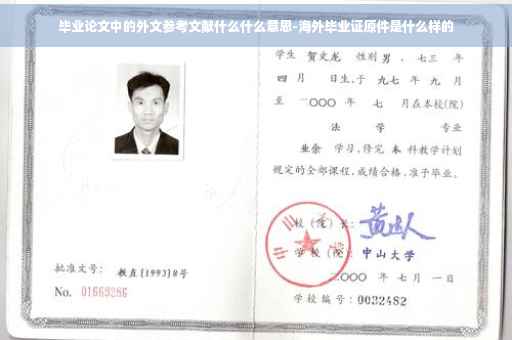 毕业论文中的外文参考文献什么什么意思-海外毕业证原件是什么样的
学生 贺文龙 性别 男 ，七三 年
四 月 日生，于 九七 年 九 月
至 二〇〇〇 年 七 月在本校(院)
法 学 专业
业余 学习，修完 本 科教学计划
规定的全部课程，成绩合格，准予毕业。
校 (院) 长：
学 校 (院)：中山大学
二〇〇〇 年 七 月 一 日
学校编号：0032482
批准文号：教直[1993]8号
No. 01669286